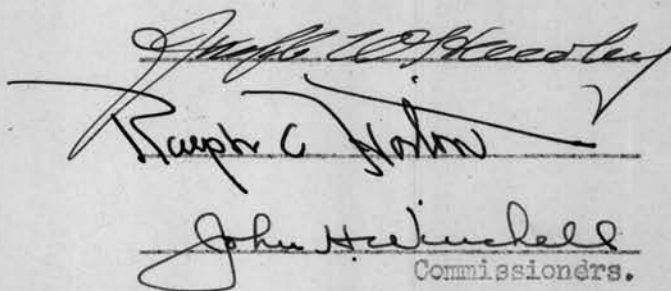 Joseph W. Hawley
Ralph C. Horton
John H. Winchell
Commissiondrs.